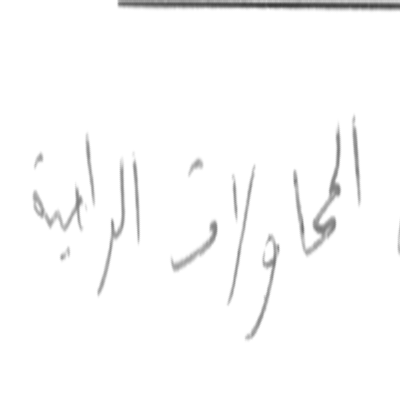 المحاولات الرامية